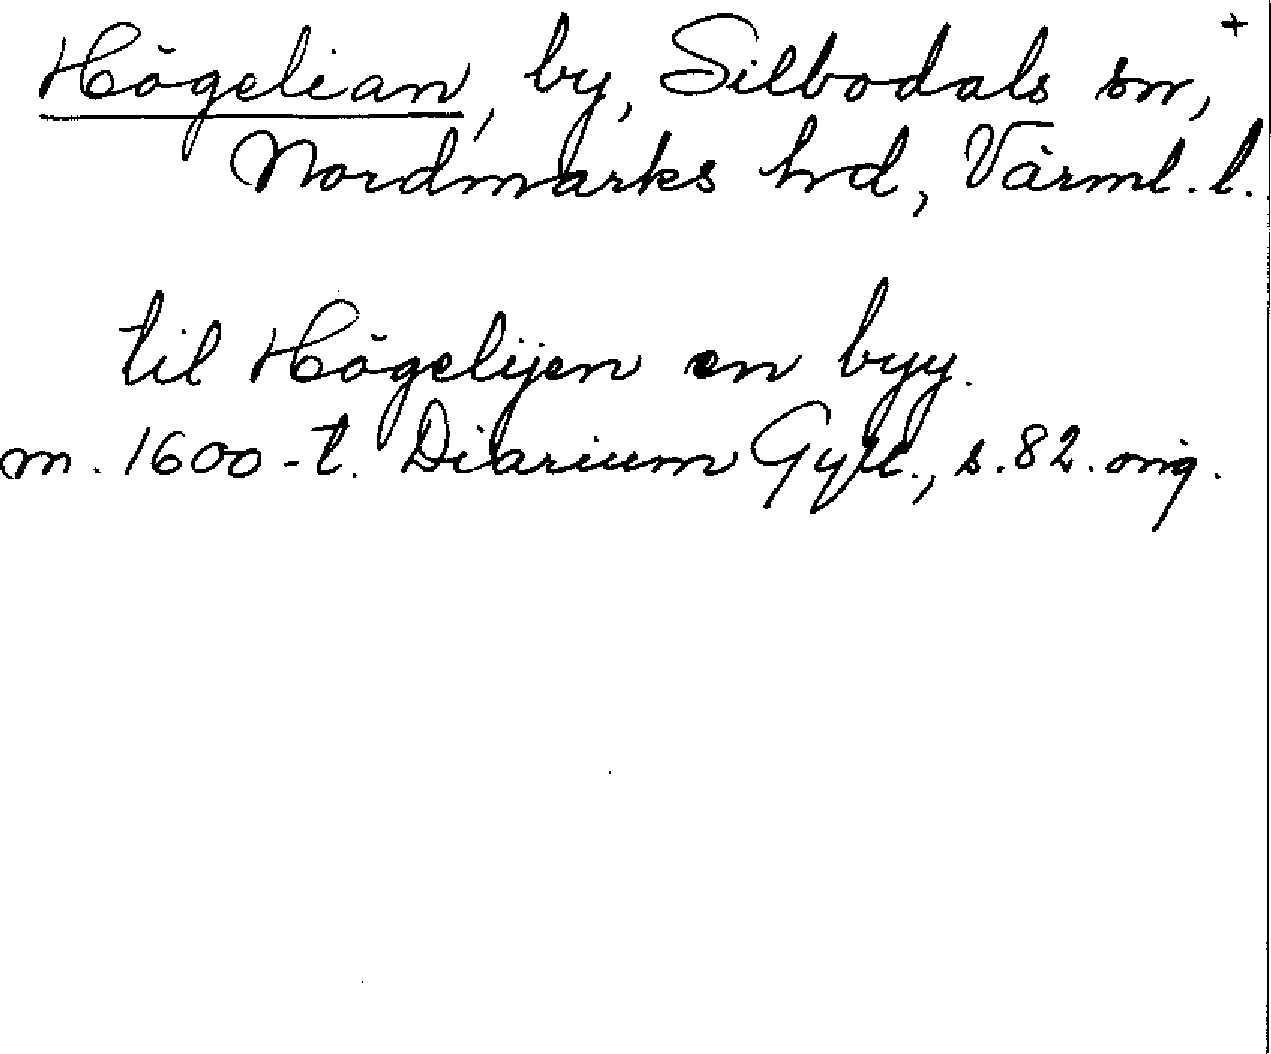 Högelian, by, Silbodals sn, +
Nordmarks hd, Värml. l.
til Högelijen en byy.
m. 1600-t. Diarium Gyll., s. 82. orig.